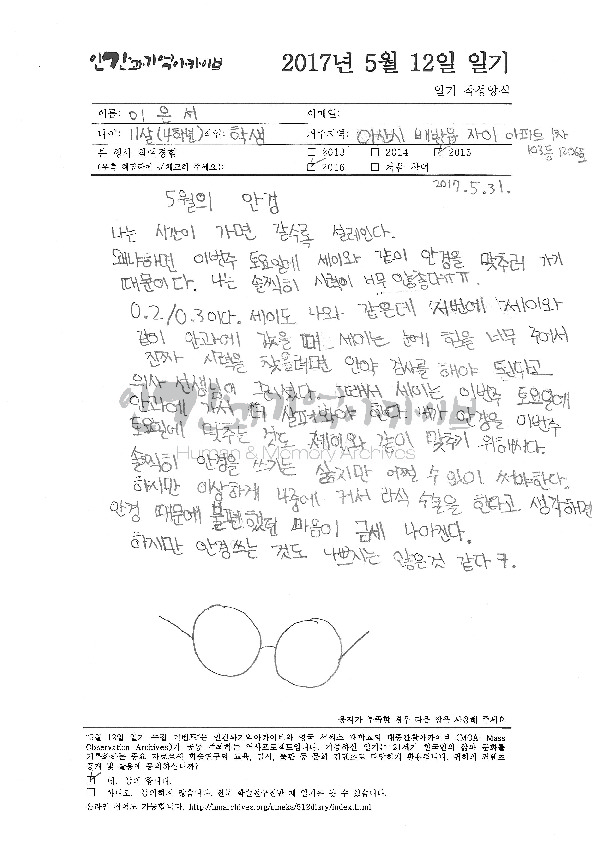 인간과기억아카이브
2017년 5월 12일 일기
일기 작성양식
이름: 이은서
이메일:
나이: 11살(4학년) 직업: 학생
거주지역: 아산시 배방읍 자이 아파트 1차
103동 1206호
본 행사 참여경험
□ 2013 □ 2014 ☑ 2015
☑ 2016 □ 처음 참여
2017.5.31.
5월의 안경
나는 시간이 가면 갈수록 설레인다.
왜냐하면 이번주 토요일에 세이와 같이 안경을 맞추러 가기
때문이다. 나는 솔찍히 시력이 너무 안좋다ㅠㅠ.
0.2/0.3이다. 세이도 나와 같은데 저번에 세이와
같이 안과에 갔을 때 세이는 눈에 힘을 너무 주어서
진짜 시력을 찾을려면 안약 검사를 해야 된다고
의사 선생님이 그러셨다. 그래서 세이는 이번주 토요일에
안과에 가서 더 살펴봐야 한다. 내가 안경을 이번주
토요일에 맞추는 것도 세이와 같이 맞추기 위해서다.
솔찍히 안경을 쓰기는 싫지만 어쩔 수 없이 써야하다.
하지만 이상하게 나중에 커서 라식 수술을 한다고 생각하면
안경 때문에 불편했던 마음이 금세 나아진다.
하지만 안경쓰는 것도 나쁘지는 않은것 같다ㅋ.
Human & Memory Archives
용지가 부족한 경우 다음 장을 사용해 주세요